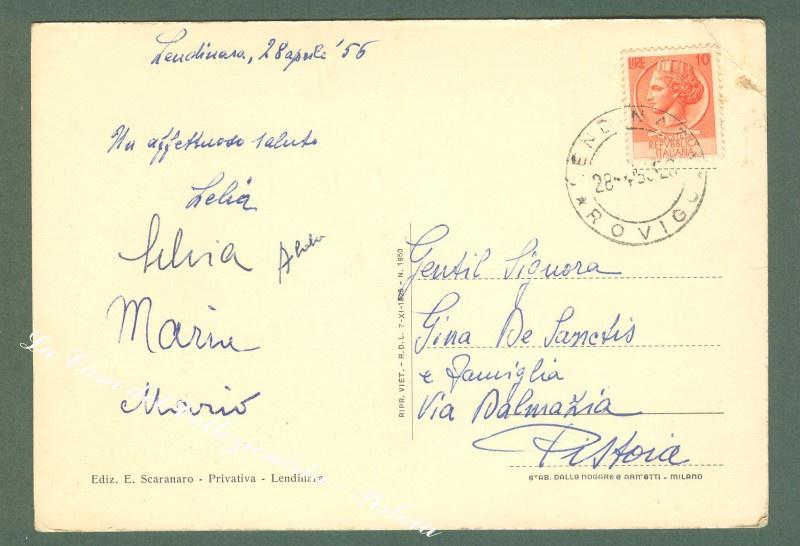 Lendinara, 28 aprile '56
Un affettuoso saluto
Lelia
Silvia
Maria
Mario
Ediz. E. Scaranaro - Privativa - Lendinara
RIPR. VIET. - R.D.L. 7-XI-1925 - N. 1950
LIRE 10
REPVBBLICA
ITALIANA
LENDINARA
28-4
★ ROVIGO
Gentil Signora
Gina De Sanctis
e famiglia
Via Dalmazia
Pistoia
STAB. DALLE NOGARE E ARMETTI - MILANO
La Casa del Collezionista - Pistoia